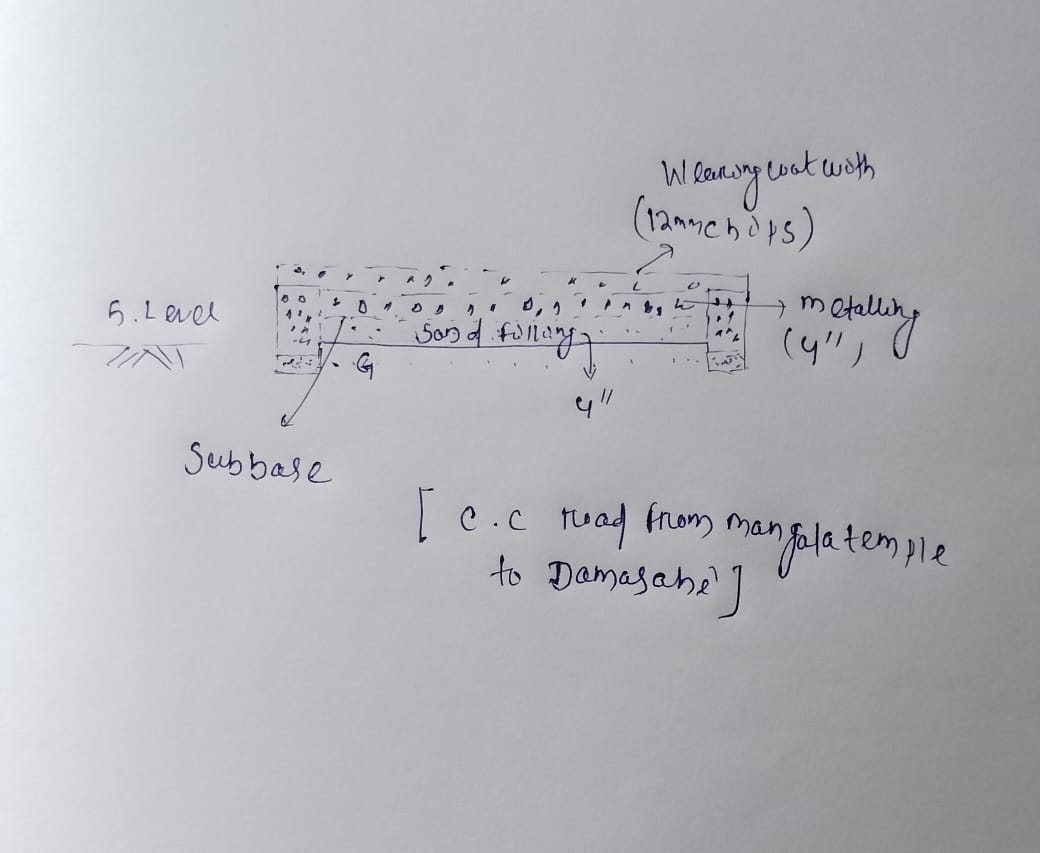 Wearing coat with
(12mm chips)
G. Level
metalling
(4",
Sand filling
G
4"
Subbase
[ C.C road from mangala temple
to Damasahi ]